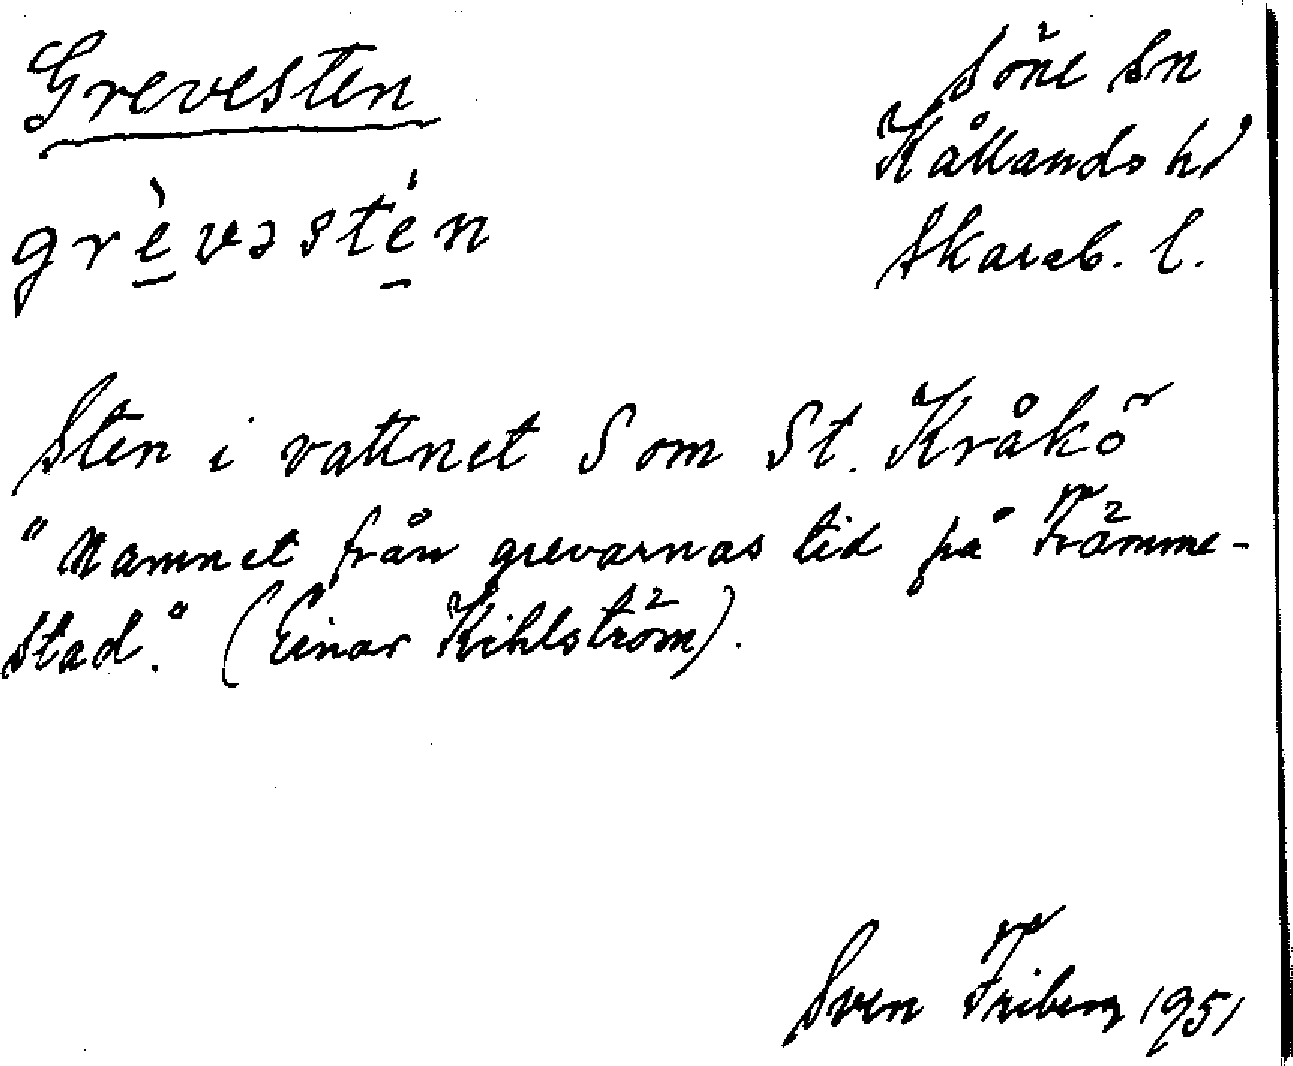 Grevesten
Söne sn
Kållands hd
Skarab. l.
grèvəstén
Sten i vattnet S om St. Kråkö
"Namnet från grevarnas tid på Främme-
stad." (Einar Kihlström).
Sven Friberg 1951